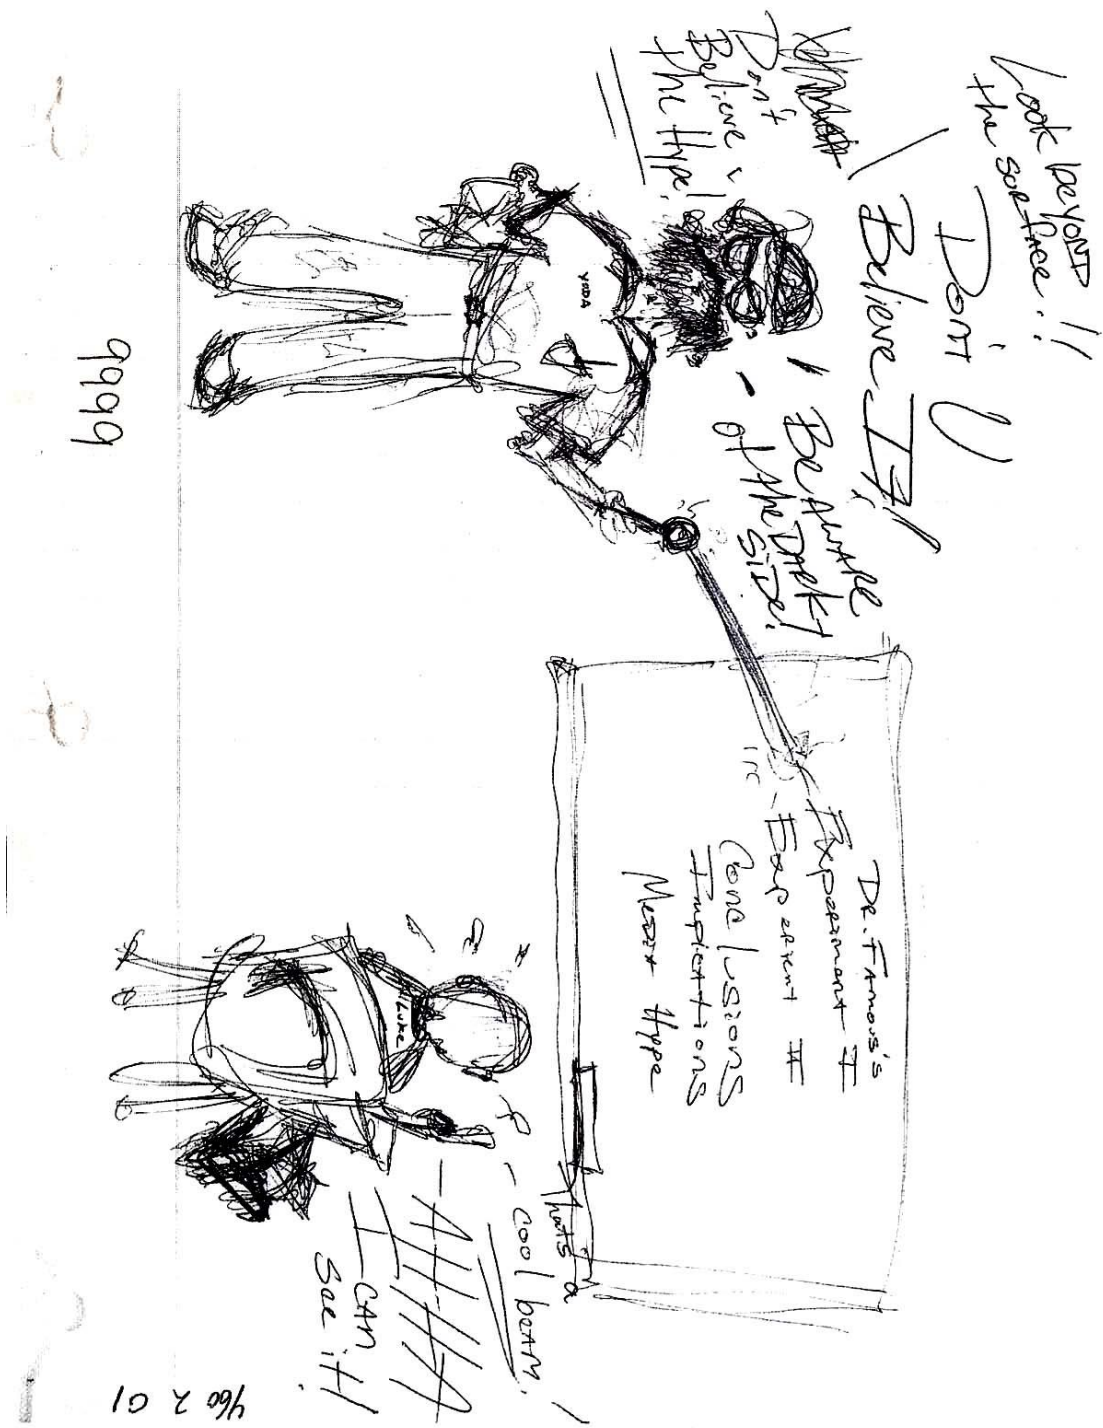 Look beyond
the surface!!
Don't U
Believe It!
Don't
Believe
the Hype!
Beaware
of the Dark
Side!
YODA
Dr. Famous's
Experiment I
Experient II
Conclusions
Implications
Media Hype
Luke
That's a
cool beam!
AHHHA
I can
See it!
9999
460 2 01